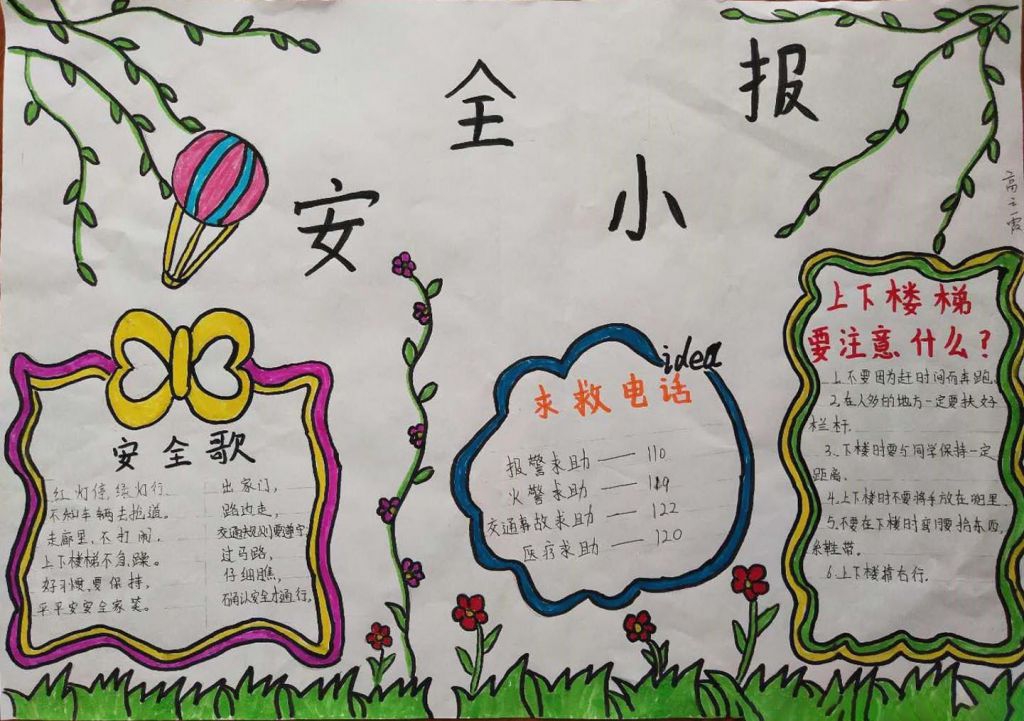 安全小报
高云霞
安全歌
红灯停,绿灯行.
不和车辆去抢道。
走廊里,不打闹,
上下楼梯不急躁。
好习惯,要保持,
平平安安全家笑。
出家门,
路边走,
交通规则要遵守,
过马路,
仔细瞧,
确认安全才通行,
idea
求救电话
报警求助 —— 110
火警求助 —— 119
交通事故求助 —— 122
医疗求助 —— 120
上下楼梯
要注意什么?
1.不要因为赶时间而奔跑.
2.在人多的地方一定要扶好
栏杆.
3.下楼时要与同学保持一定
距离.
4.上下楼时不要将手放在兜里.
5.不要在下楼时弯腰拾东西,
系鞋带.
6.上下楼靠右行.